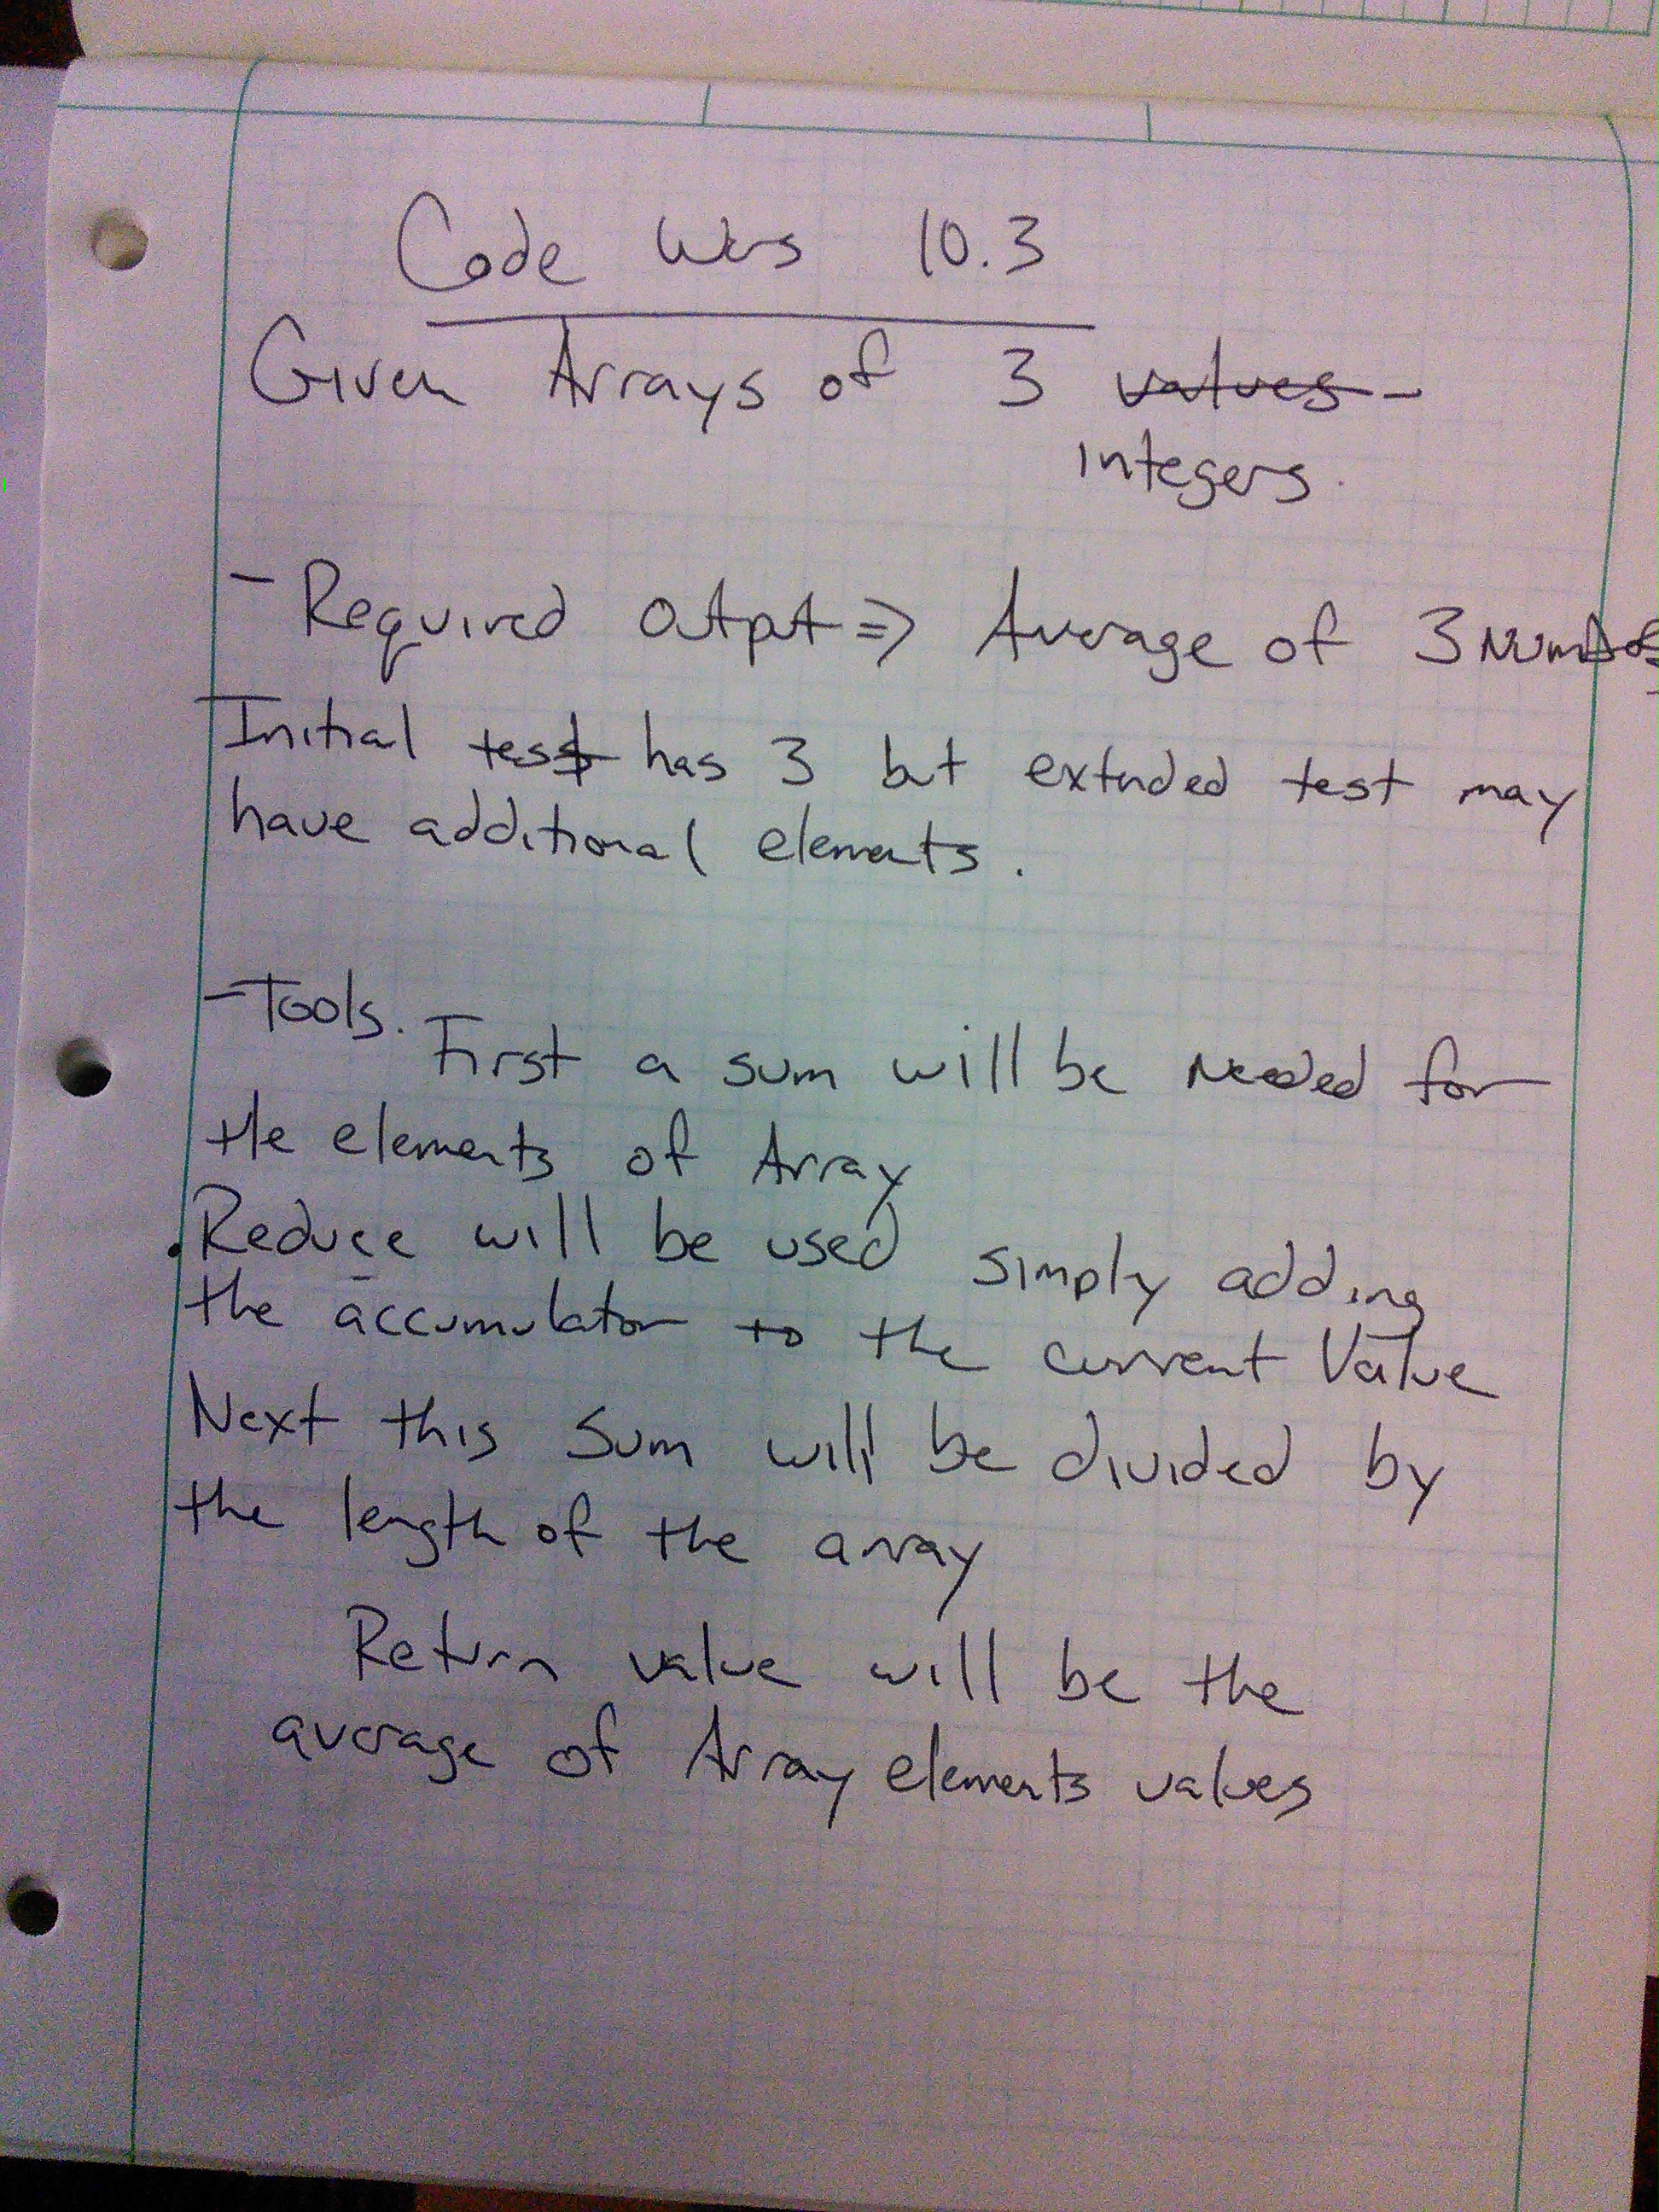 Code Wars 10.3
Given Arrays of 3 values
integers.
- Required Output => Average of 3 Numbers
Initial test has 3 but extended test may
have additional elements.
- Tools. First a sum will be needed for
the elements of Array
. Reduce will be used simply adding
the accumulator to the current Value
Next this Sum will be divided by
the length of the array
Return value will be the
average of Array elements values